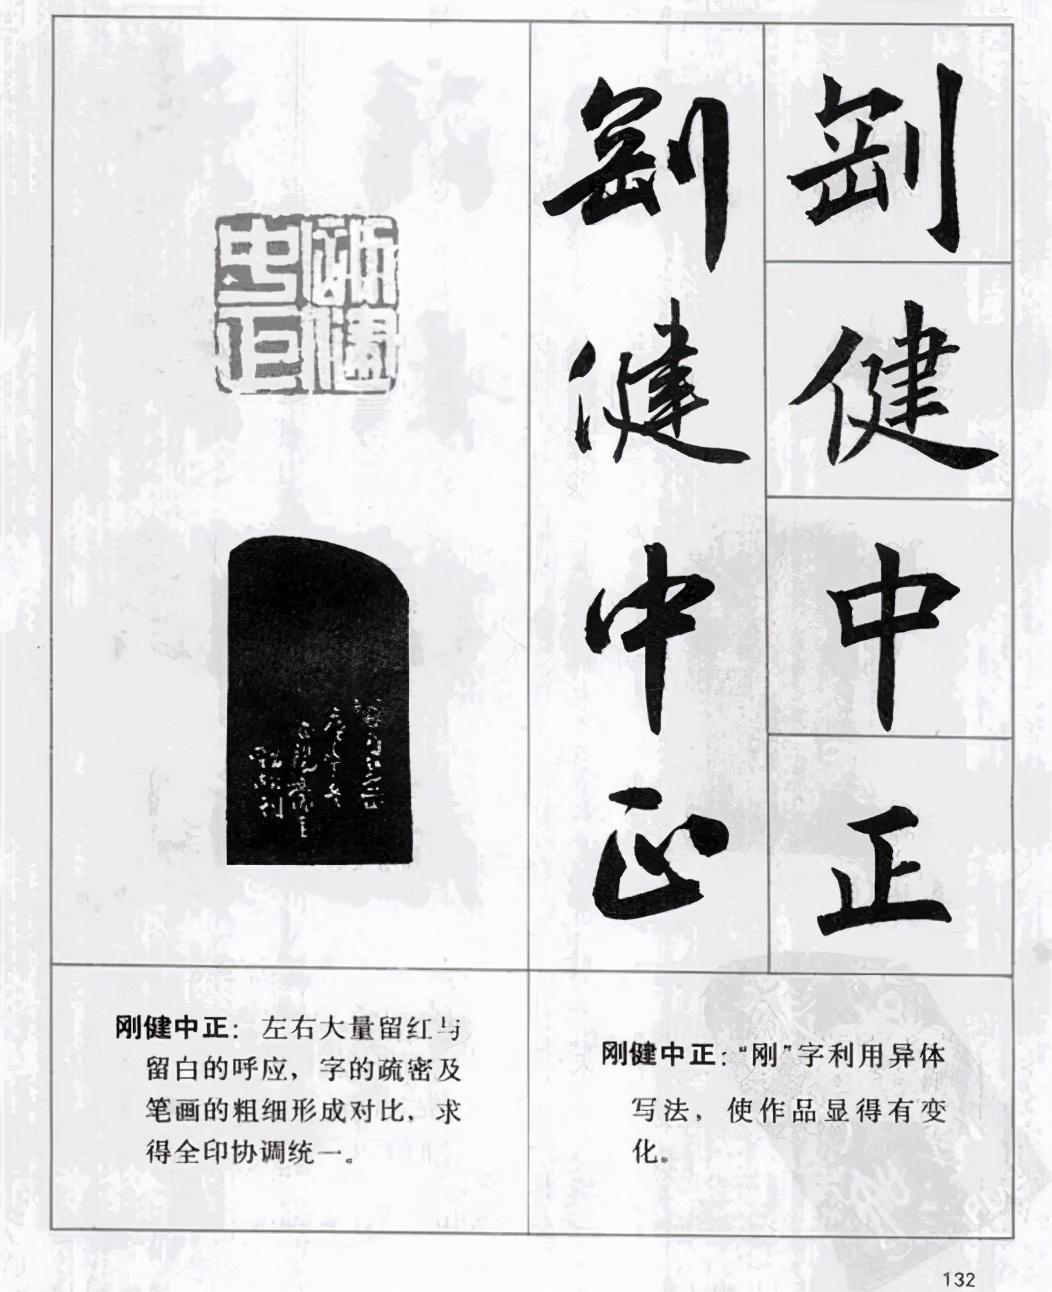 剛
健
中
正
剛
健
中
正
中 剛
正 健
刚健中正：左右大量留红与
留白的呼应，字的疏密及
笔画的粗细形成对比，求
得全印协调统一。
刚健中正：“刚”字利用异体
写法，使作品显得有变
化。
132